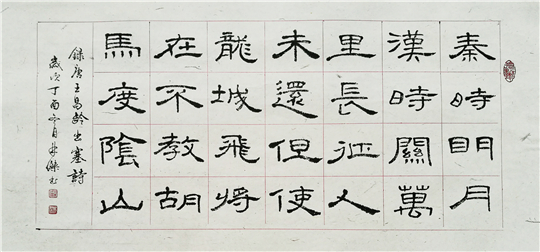 秦時明月
漢時關萬
里長征人
未還但使
龍城飛將
在不教胡
馬度陰山
錄唐王昌齡出塞詩
歲次丁酉冬月